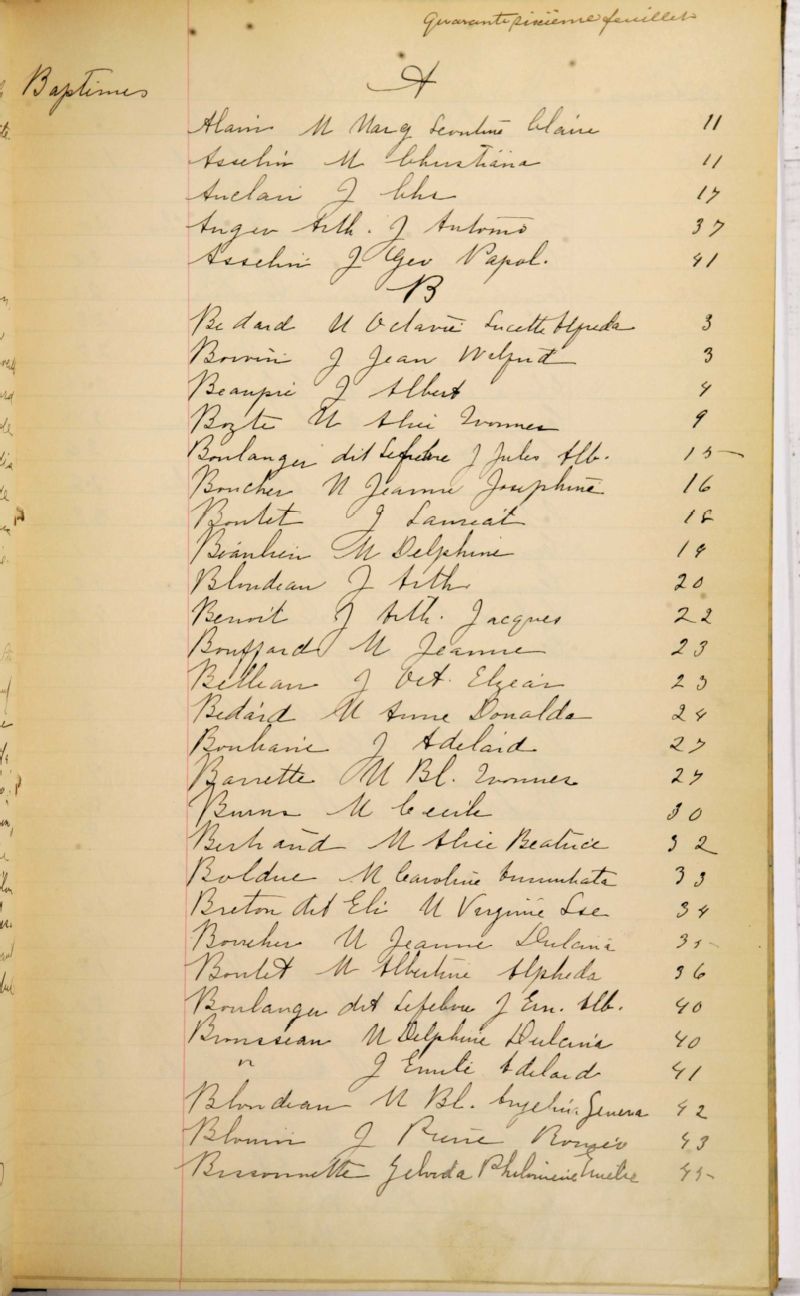 Quarante sixième feuillet
Baptêmes
A
Alain M Marg Leontine Claire 11
Asselin M Christiana 11
Auclair J Chs 17
Anger Arth. J Antonio 37
Asselin J Geo Napol. 41
B
Bedard M Octavie Lucette Alfreda 3
Boivin J Jean Wilfrid 3
Beaupré J Albert 4
M Alice Yvonne 9
Boulanger dit Lefebvre J Jules Alb. 15
Boucher M Jeanne Josephine 16
Boutet J Lauréat 18
Beaulieu M Delphine 19
Blondeau J Arth. 20
Benoit J Arth. Jacques 22
Bouffard M Jeanne 23
J Oct. Elzéar 23
Bedard M Anne Donalda 24
J Adelard 27
Barrette M Bl. Yvonne 27
Burns M Cecile 30
Bertrand M Alice Beatrice 32
Bolduc M Caroline Annunciata 33
Breton dit Eli M Virginie Lse 34
Boucher M Jeanne Dulcina 35
Boutet M Albertine Alpheda 36
Boulanger dit Lefebvre J Em. Alb. 40
Brousseau M Delphine Dulcina 40
" J Emile Adelard 41
Blondeau M Bl. Angelin. Geneva 42
Blouin J Pierre Romeo 43
Bissonnette Philomene Emelie 45